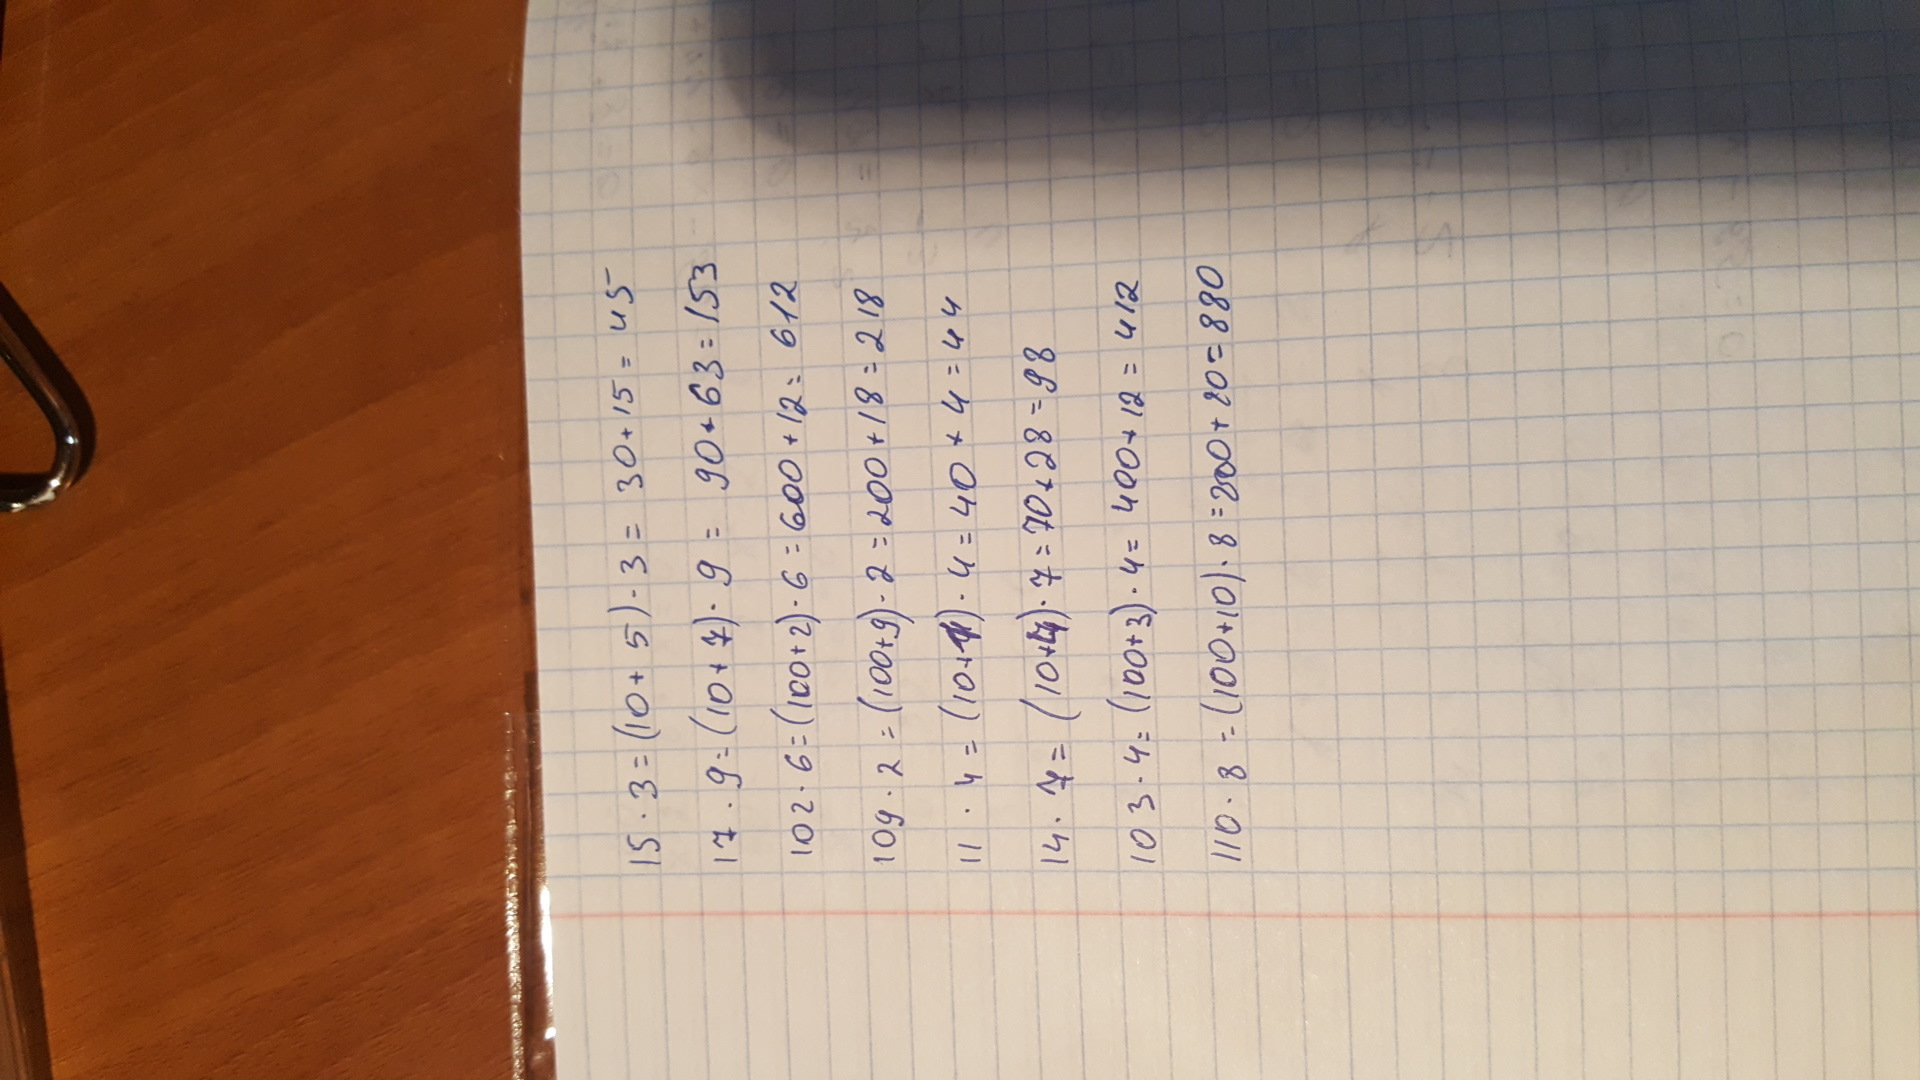 15 · 3 = (10 + 5) · 3 = 30 + 15 = 45
17 · 9 = (10 + 7) · 9 = 90 + 63 = 153
102 · 6 = (100 + 2) · 6 = 600 + 12 = 612
109 · 2 = (100 + 9) · 2 = 200 + 18 = 218
11 · 4 = (10 + 1) · 4 = 40 + 4 = 44
14 · 7 = (10 + 4) · 7 = 70 + 28 = 98
103 · 4 = (100 + 3) · 4 = 400 + 12 = 412
110 · 8 = (100 + 10) · 8 = 800 + 80 = 880